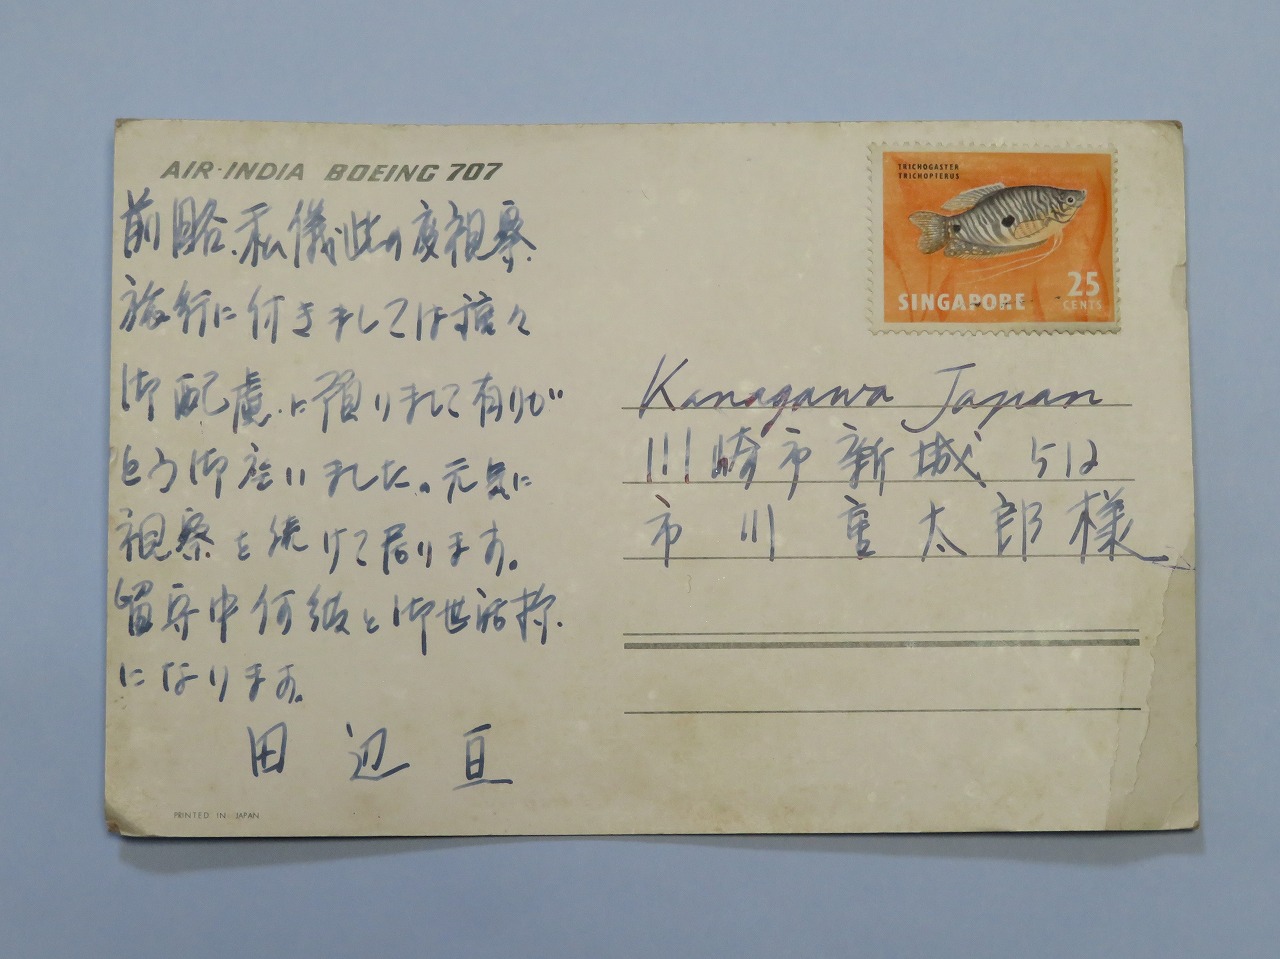 AIR-INDIA BOEING 707
前略、私儀此の度視察
旅行に付きましては種々
御配慮に預りまして有りが
とう御座いました。元気に
視察を続けて居ります。
留守中何彼と御世話様
になります。
田辺亘
PRINTED IN JAPAN
TRICHOGASTER
TRICHOPTERUS
25
CENTS
SINGAPORE
Kanagawa Japan
川崎市新城 512
市川重太郎様